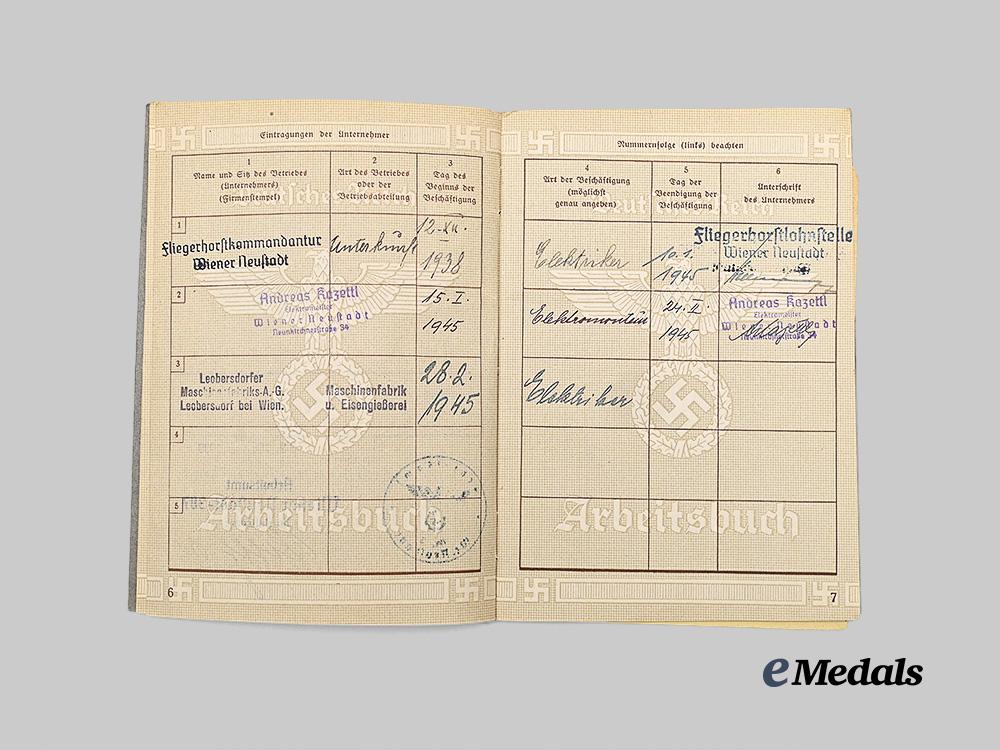 Eintragungen der Unternehmer
1
Name und Sitz des Betriebes
(Unternehmers)
(Firmenstempel)
2
Art des Betriebes
oder der
Betriebsabteilung
3
Tag des
Beginns der
Beschäftigung
1
Fliegerhorstkommandantur
Wiener Neustadt
Unterkunft
12.XII.
1938
2
Andreas Kazettl
Elektromeister
Wiener Neustadt
Neunkirchnerstraße 34
15.I.
1945
3
Leobersdorfer
Maschinenfabriks-A.-G.
Leobersdorf bei Wien.
Maschinenfabrik
u. Eisengießerei
28.2.
1945
4
5
Deutsches Reich
Arbeitsbuch
6
Nummernfolge (links) beachten
4
Art der Beschäftigung
(möglichst
genau angeben)
5
Tag der
Beendigung der
Beschäftigung
6
Unterschrift
des Unternehmers
Elektriker
10.1.
1945
Fliegerhorstlohnstelle
Wiener Neustadt
Elektromonteur
24.II.
1945
Andreas Kazettl
Elektromeister
Wiener Neustadt
Neunkirchnerstraße 34
Elektriker
Deutsches Reich
Arbeitsbuch
7
eMedals